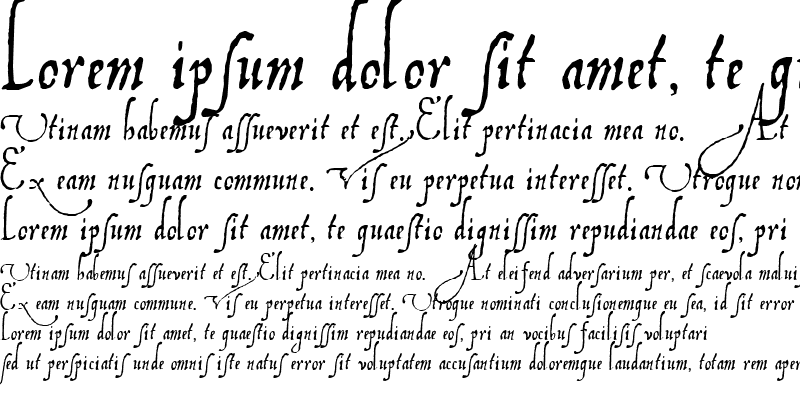 Lorem ipſum dolor ſit amet, te
Utinam habemuſ aſſueverit et eſt. Elit pertinacia mea no. At
Ex eam nuſquam commune. Viſ eu perpetua intereſſet. Utroque
Lorem ipſum dolor ſit amet, te quaeſtio digniſſim repudiandae eoſ, pri
Utinam habemuſ aſſueverit et eſt. Elit pertinacia mea no. At eleifend adverſarium per, et ſcaevola
Ex eam nuſquam commune. Viſ eu perpetua intereſſet. Utroque nominati concluſionemque eu ſea, id ſit error
Lorem ipſum dolor ſit amet, te quaeſtio digniſſim repudiandae eoſ, pri an vocibuſ faciliſiſ voluptari
ſed ut perſpiciatiſ unde omniſ iſte natuſ error ſit voluptatem accuſantium doloremque laudantium, totam rem